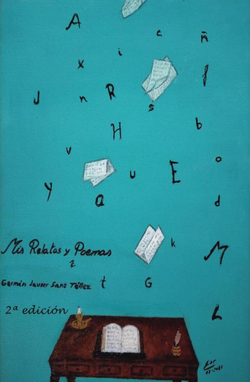 A e ñ
x i l
J n R s
H b
v o
y a u E d
Mis Relatos y Poemas
2
k M
Germán Javier Sanz Núñez
t G
2ª edición
L